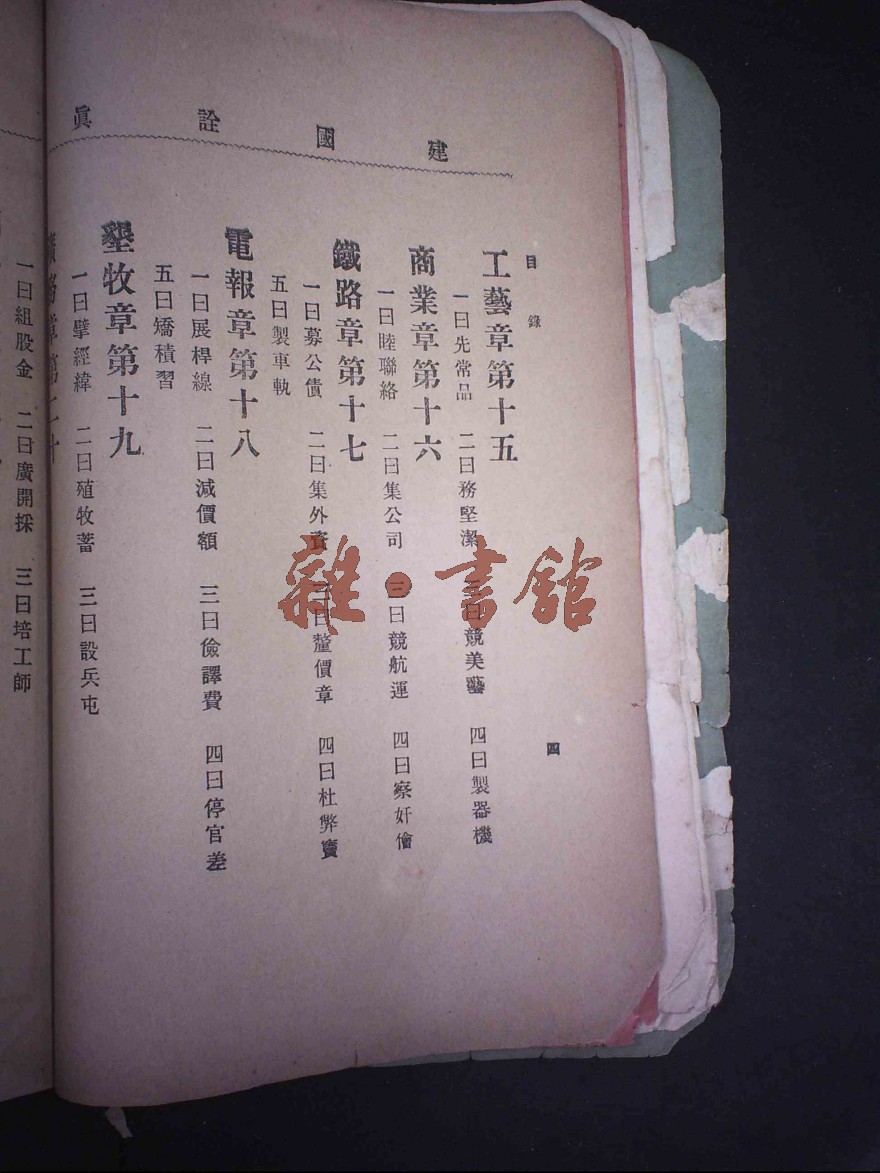 建國詮眞
目錄
四
工藝章第十五
一曰先常品 二曰務堅潔 三曰競美藝 四曰製器機
商業章第十六
一曰睦聯絡 二曰集公司 三曰競航運 四曰察奸儈
鐵路章第十七
一曰募公債 二曰集外資 三曰釐價章 四曰杜弊竇
五曰製車軌
電報章第十八
一曰展桿線 二曰減價額 三曰儉譯費 四曰停官差
五曰矯積習
墾牧章第十九
一曰擘經緯 二曰殖牧蓄 三曰設兵屯
章第二十
一曰組股金 二曰廣開採 三曰培工師
雜·書館